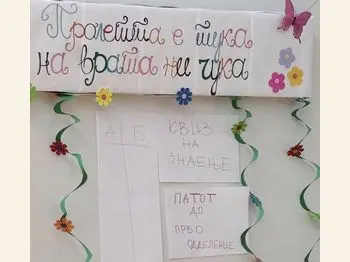 Пролетта е тука
на врата ни чука
А Б
КВИЗ
НА
ЗНАЕЊЕ
ПАТОТ
ДО
ПРВО
ОДДЕЛЕНИЕ